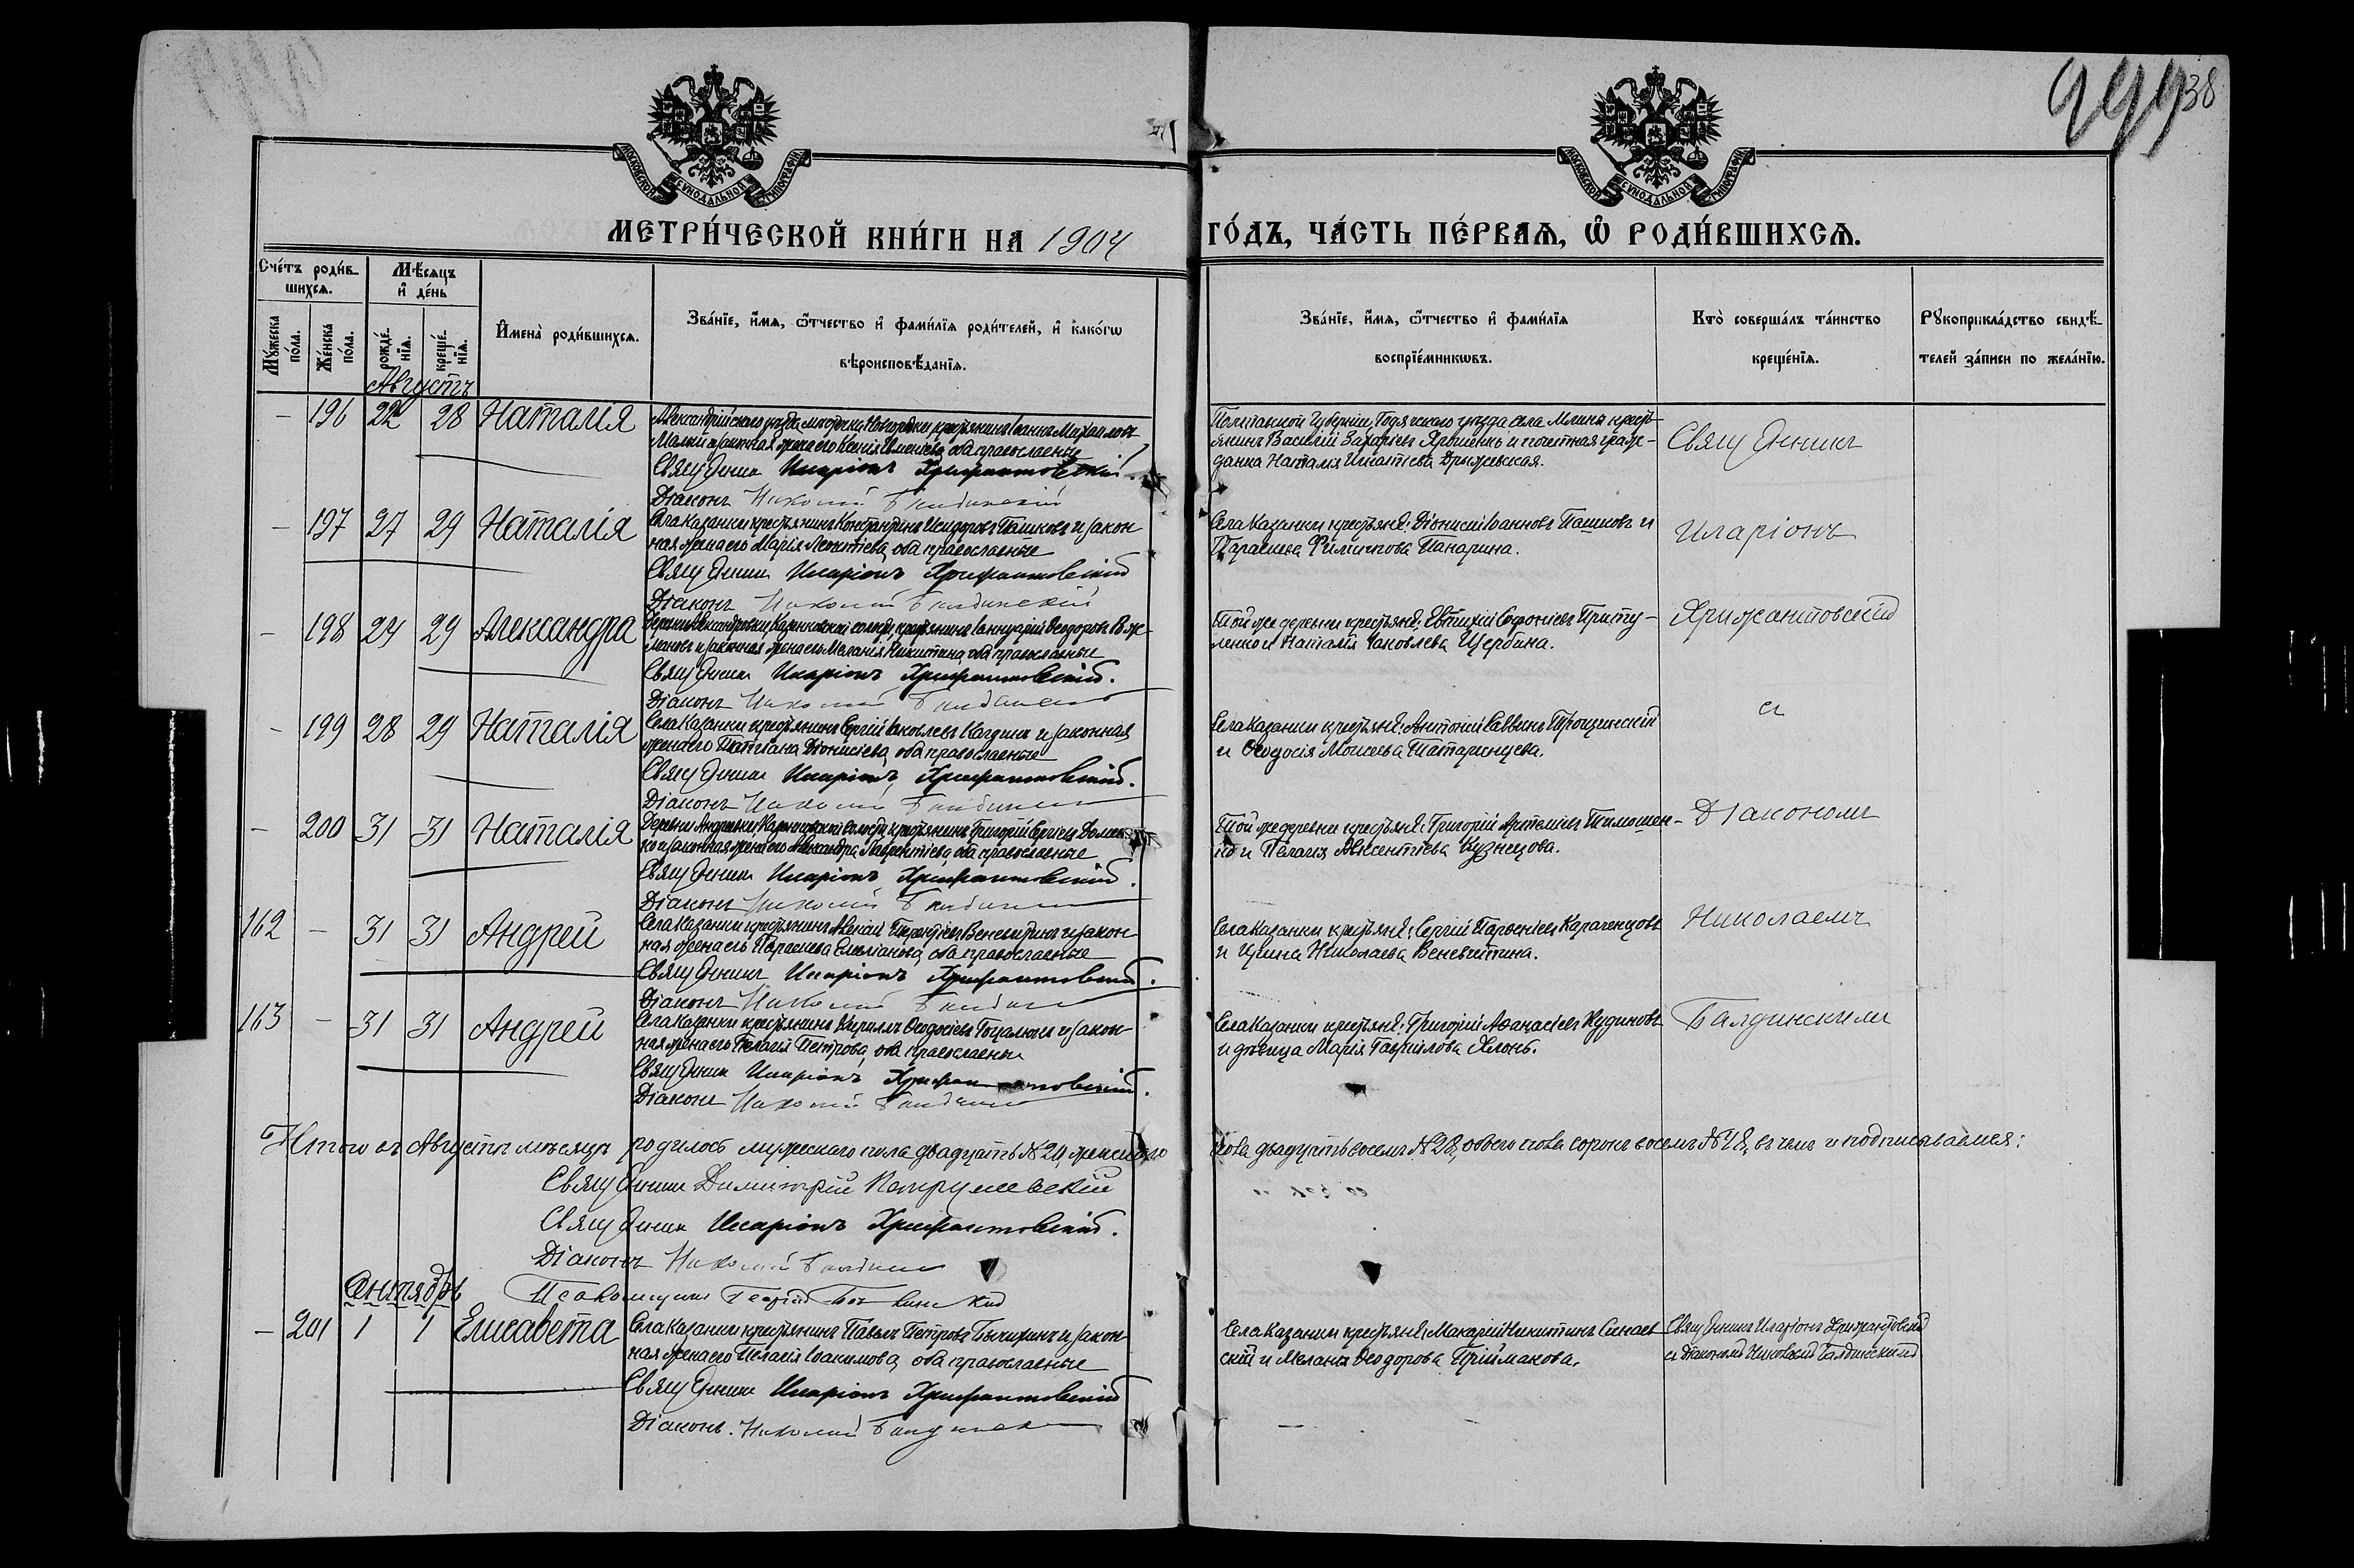 999 38
МОСКОВСКОЙ СѴНОДАЛЬНОЙ ТИПОГРАФІИ
МОСКОВСКОЙ СѴНОДАЛЬНОЙ ТИПОГРАФІИ
МЕТРИ́ЧЕСКОЙ КНИ́ГИ НА 1904 ГО́ДЪ, ЧА́СТЬ ПЕ́РВАѦ, Ѡ҆ РОДИ́ВШИХСѦ.
Сче́тъ роди́в-
шихсѧ.
Мѣ́сѧцъ
и҆ де́нь
Мꙋ́жеска
по́ла.
Же́нска
по́ла.
рожде́-
нїѧ.
креще́-
нїѧ.
И҆мена̀ роди́вшихсѧ.
Зва́нїе, и҆́мѧ, ѻ҆́тчество и҆ фами́лїѧ роди́телей, и҆ како́гѡ
вѣроисповѣ́данїѧ.
Зва́нїе, и҆́мѧ, ѻ҆́тчество и҆ фами́лїѧ
воспрїе́мникѡвъ.
Кто̀ соверша́лъ та́инство
креще́нїѧ.
Рꙋкоприкла́дство свидѣ́-
телей за́писи по жела́нїю.
Августъ
- 196 22 28 Наталія
Александрійского уѣзда мѣстечка Новгородки крестьянинъ Іоаннъ Михаиловъ
законная жена его Ксенія оба православные
Священникъ Иларіонъ Хрисантовскій.
Діаконъ Николай Балдинскій
Полтавской Губерніи Гадячского уѣзда села Млины кресть-
янинъ Василій Захаріевъ Ярошенко и почетная граж-
данка Наталія Игнатіева
Священникъ
- 197 27 29 Наталія
Села Казанки крестьянинъ Константинъ Исидоровъ Пашковъ и закон-
ная жена его Марія Леонтіева, оба православные
Священникъ Иларіонъ Хрисантовскій
Діаконъ Николай Балдинскій
Села Казанки крестьяне: Діонисій Іоанновъ Пашковъ и
Параскева Филиппова Панарина.
Иларіонъ
- 198 24 29 Александра
Деревни Александровки, Казанковской волости, крестьянинъ Іаннуарій Ѳеодоровъ
и законная жена его Меланія Никитина, оба православные
Священникъ Иларіонъ Хрисантовскій.
Діаконъ Николай Балдинскій
Той же деревни крестьяне: Евтихій Софоніевъ Приту-
ленко и Наталія Іаковлева Щербина.
Хрисантовскій
- 199 28 29 Наталія
Села Казанки крестьянинъ Сергій Іаковлевъ и законная
жена его Татіана Діонисіева, оба православные
Священникъ Иларіонъ Хрисантовскій.
Діаконъ Николай Балдинскій
Села Казанки крестьяне: Антоній Саввинъ Троцинскій
и Ѳеодосія Моисеева Татаринцева.
съ
- 200 31 31 Наталія
Деревни Андреевки, Казанковской волости, крестьянинъ Григорій Сергіевъ
законная жена его Александра Лаврентіева, оба православные
Священникъ Иларіонъ Хрисантовскій.
Діаконъ Николай Балдинскій
Той же деревни крестьяне: Григорій Артеміевъ Тимошен-
ко и Пелагія Авксентіева Кузнецова.
Діакономъ
162 - 31 31 Андрей
Села Казанки крестьянинъ Алексій Терентіевъ Веневитинъ и закон-
ная жена его Параскева Емеліанова, оба православные
Священникъ Иларіонъ Хрисантовскій.
Діаконъ Николай Балдинскій
Села Казанки крестьяне: Сергій Парѳеніевъ Карагенцовъ
и Ирина Николаева Веневитина.
Николаемъ
163 - 31 31 Андрей
Села Казанки крестьянинъ Кириллъ Ѳеодосіевъ и закон-
ная жена его Пелагія Петрова, оба православные
Священникъ Иларіонъ Хрисантовскій.
Діаконъ Николай Балдинскій
Села Казанки крестьяне: Григорій Аѳанасіевъ Кудиновъ
и дѣвица Марія Гавріилова
Балдинскимъ
Итого въ Августѣ мѣсяцѣ родилось мужескаго пола двадцать № 20, женскаго пола двадцать восемь № 28, обоего пола сорокъ восемь № 48, въ чемъ и подписываемся:
Священникъ Димитрій
Священникъ Иларіонъ Хрисантовскій.
Діаконъ Николай Балдинскій
Псаломщикъ Георгій
Сентябрь
- 201 1 1 Елисавета
Села Казанки крестьянинъ Павелъ Петровъ и закон-
ная жена его Пелагія Іоакимова, оба православные
Священникъ Иларіонъ Хрисантовскій
Діаконъ. Николай Балдинскій
Села Казанки крестьяне: Макарій Никитинъ Синаев-
скій и Меланія Ѳеодорова Пріймакова.
Священникъ Иларіонъ Хрисантовскій
съ Діакономъ Николаемъ Балдинскимъ